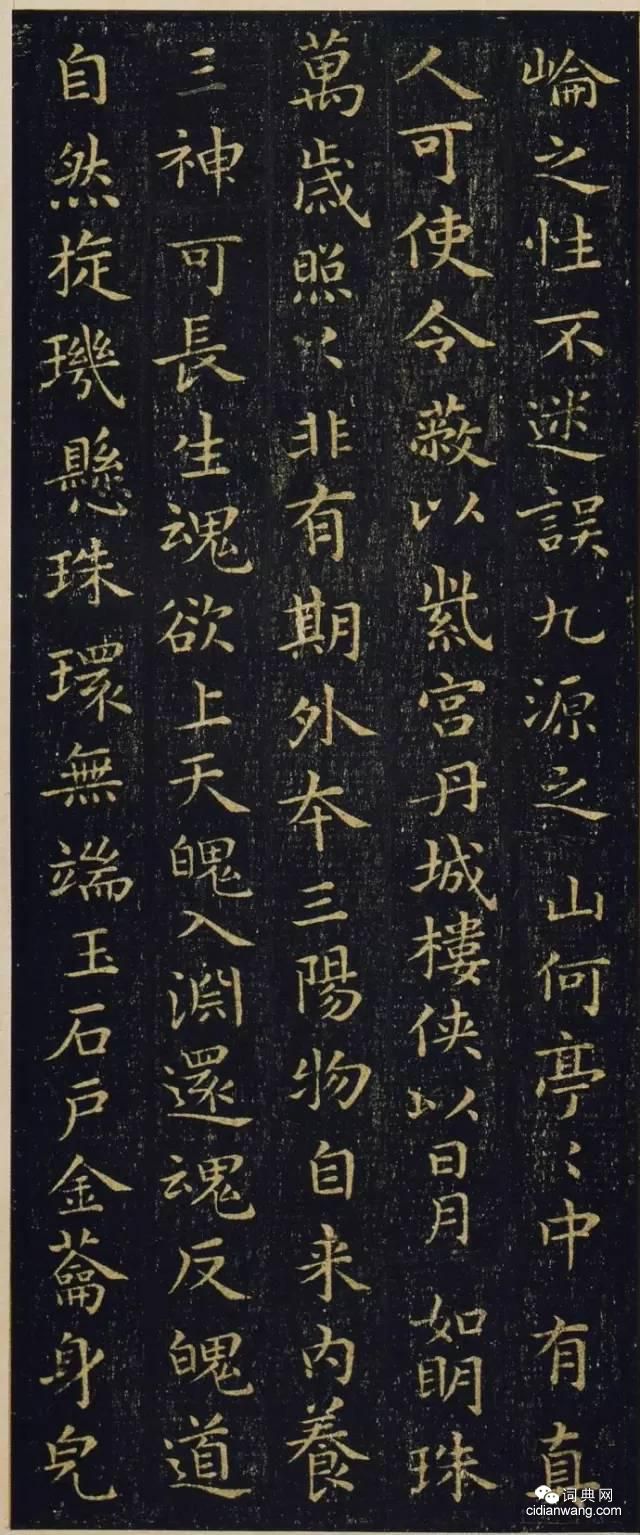 崘之性不迷誤九源之山何亭〻中有真
人可使令蔽以紫宫丹城樓俠以日月如明珠
萬歳照〻非有期外夲三陽物自来内養
三神可長生魂欲上天魄入淵還魂反魄道
自然㫌璣懸珠環無端玉石戶金蘥身皃
词典网
cidianwang.com